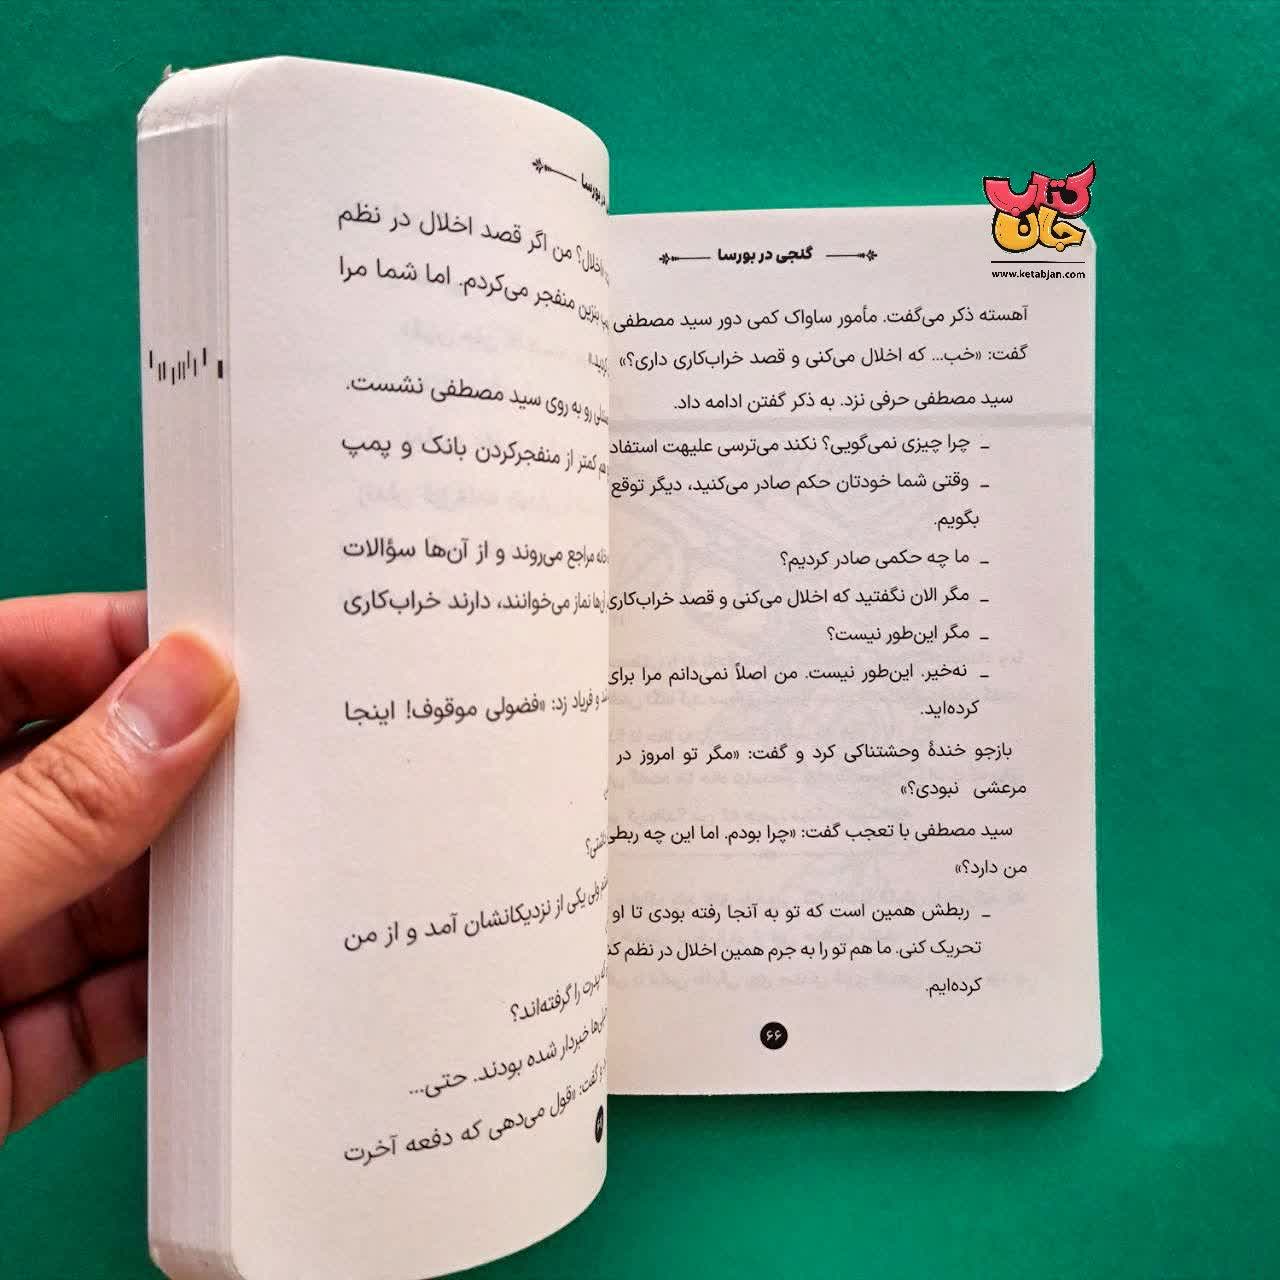 کتاب جان
www.ketabjan.com
گنجی در بورسا
آهسته ذکر می‌گفت. مأمور ساواک کمی دور سید مصطفی
گفت: «خب... که اخلال می‌کنی و قصد خراب‌کاری داری؟»
سید مصطفی حرفی نزد. به ذکر گفتن ادامه داد.
ـ چرا چیزی نمی‌گویی؟ نکند می‌ترسی علیهت
ـ وقتی شما خودتان حکم صادر می‌کنید، دیگر توقع
بگویم.
ـ ما چه حکمی صادر کردیم؟
ـ مگر الان نگفتید که اخلال می‌کنی و قصد خراب‌کاری
ـ مگر این‌طور نیست؟
ـ نه‌خیر. این‌طور نیست. من اصلاً نمی‌دانم مرا برای
کرده‌اید.
بازجو خندهٔ وحشتناکی کرد و گفت: «مگر تو امروز در
مرعشی نبودی؟»
سید مصطفی با تعجب گفت: «چرا بودم. اما این چه ربطی
من دارد؟»
ـ ربطش همین است که تو به آنجا رفته بودی تا او
تحریک کنی. ما هم تو را به جرم همین اخلال در نظم
کرده‌ایم.
۶۶
بورسا
اخلال؟ من اگر قصد اخلال در نظم
بنزین منفجر می‌کردم. اما شما مرا
رو به روی سید مصطفی نشست.
هم کمتر از منفجرکردن بانک و پمپ
مراجع می‌روند و از آن‌ها سؤالات
نماز می‌خوانند، دارند خراب‌کاری
و فریاد زد: «فضولی موقوف! اینجا
ولی یکی از نزدیکانشان آمد و از من
پدرت را گرفته‌اند؟
خبردار شده بودند. حتی...
گفت: «قول می‌دهی که دفعه آخرت